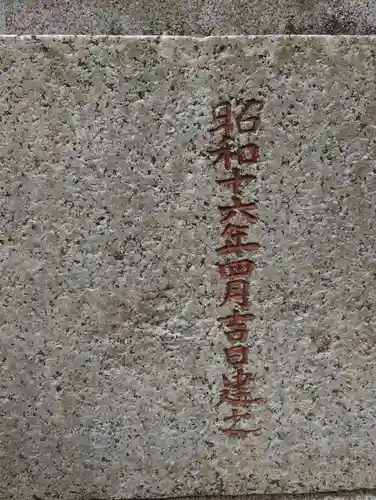 昭和十六年四月吉日建之